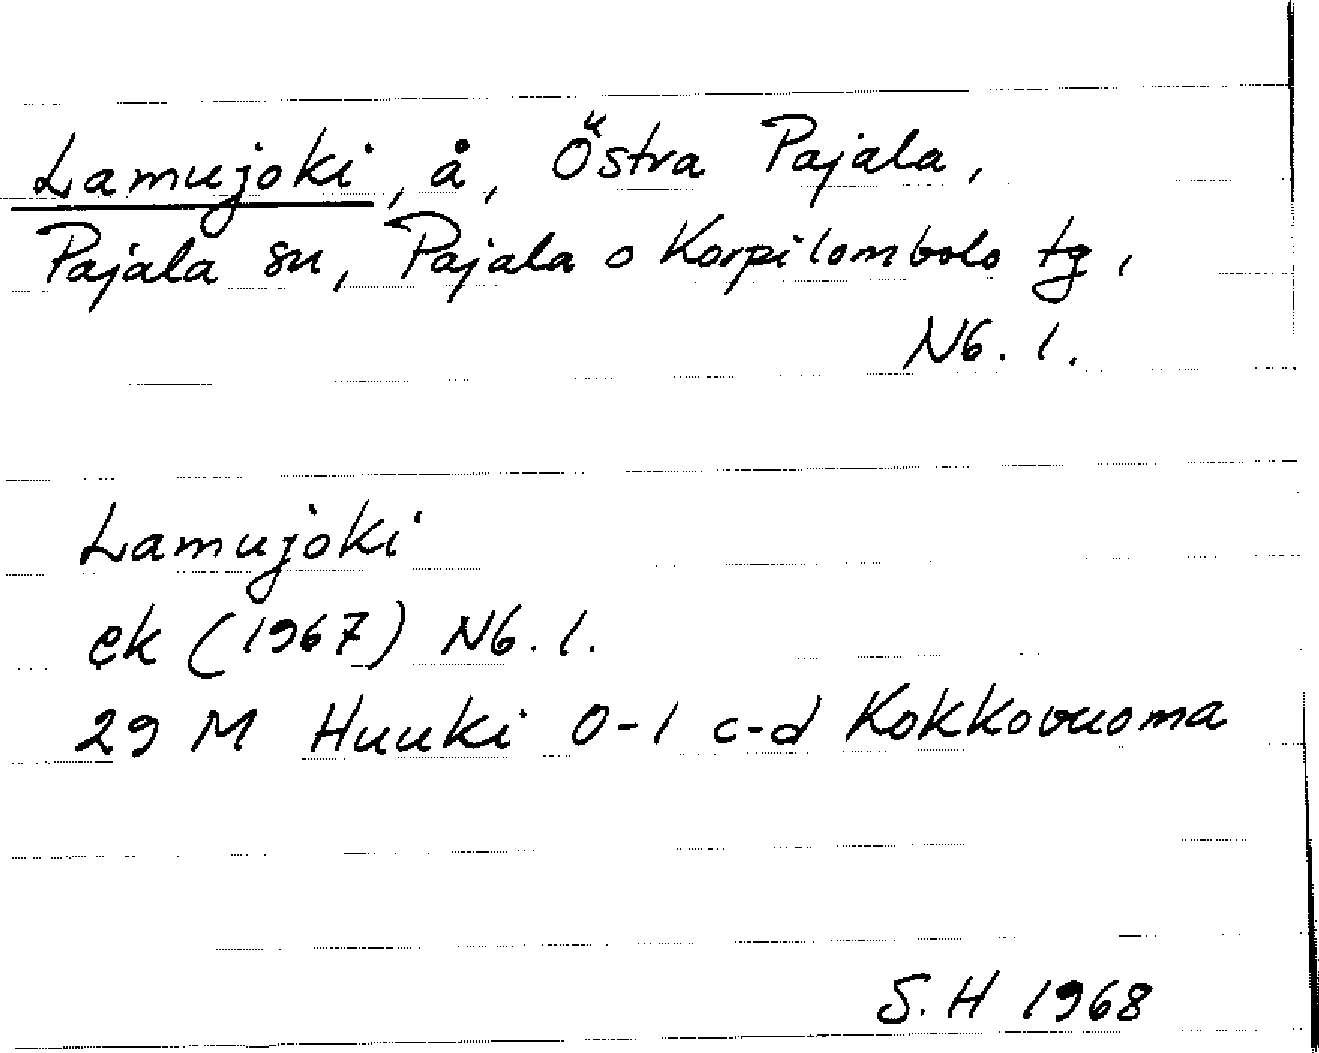 Lamujoki, å, Östra Pajala,
Pajala sn, Pajala o Korpilombolo tg,
Nb. l.
Lamujoki
ek (1967) Nb. l.
29 M Huuki 0-1 c-d Kokkovuoma
S. H 1968